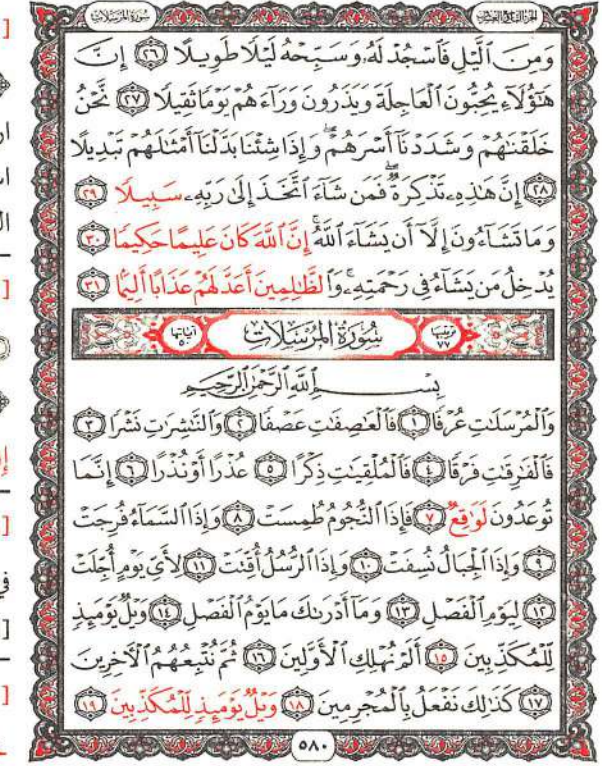 سُورَةُ المُرْسَلَاتِ الجُزءُ التَّاسِعُ وَالعِشْرُونَ
وَمِنَ ٱلَّيۡلِ فَٱسۡجُدۡ لَهُۥ وَسَبِّحۡهُ لَيۡلٗا طَوِيلًا ٢٦ إِنَّ
هَٰٓؤُلَآءِ يُحِبُّونَ ٱلۡعَاجِلَةَ وَيَذَرُونَ وَرَآءَهُمۡ يَوۡمٗا ثَقِيلٗا ٢٧ نَّحۡنُ
خَلَقۡنَٰهُمۡ وَشَدَدۡنَآ أَسۡرَهُمۡۖ وَإِذَا شِئۡنَا بَدَّلۡنَآ أَمۡثَٰلَهُمۡ تَبۡدِيلًا
٢٨ إِنَّ هَٰذِهِۦ تَذۡكِرَةٞۖ فَمَن شَآءَ ٱتَّخَذَ إِلَىٰ رَبِّهِۦ سَبِيلٗا ٢٩
وَمَا تَشَآءُونَ إِلَّآ أَن يَشَآءَ ٱللَّهُۚ إِنَّ ٱللَّهَ كَانَ عَلِيمًا حَكِيمٗا ٣٠
يُدۡخِلُ مَن يَشَآءُ فِي رَحۡمَتِهِۦۚ وَٱلظَّٰلِمِينَ أَعَدَّ لَهُمۡ عَذَابًا أَلِيمَۢا ٣١
ترتيبها ٧٧ سُورَةُ المُرْسَلَاتِ آياتها ٥٠
بِسۡمِ ٱللَّهِ ٱلرَّحۡمَٰنِ ٱلرَّحِيمِ
وَٱلۡمُرۡسَلَٰتِ عُرۡفٗا ١ فَٱلۡعَٰصِفَٰتِ عَصۡفٗا ٢ وَٱلنَّٰشِرَٰتِ نَشۡرٗا ٣
فَٱلۡفَٰرِقَٰتِ فَرۡقٗا ٤ فَٱلۡمُلۡقِيَٰتِ ذِكۡرًا ٥ عُذۡرًا أَوۡ نُذۡرًا ٦ إِنَّمَا
تُوعَدُونَ لَوَٰقِعٞ ٧ فَإِذَا ٱلنُّجُومُ طُمِسَتۡ ٨ وَإِذَا ٱلسَّمَآءُ فُرِجَتۡ
٩ وَإِذَا ٱلۡجِبَالُ نُسِفَتۡ ١٠ وَإِذَا ٱلرُّسُلُ أُقِّتَتۡ ١١ لِأَيِّ يَوۡمٍ أُجِّلَتۡ
١٢ لِيَوۡمِ ٱلۡفَصۡلِ ١٣ وَمَآ أَدۡرَىٰكَ مَا يَوۡمُ ٱلۡفَصۡلِ ١٤ وَيۡلٞ يَوۡمَئِذٖ
لِّلۡمُكَذِّبِينَ ١٥ أَلَمۡ نُهۡلِكِ ٱلۡأَوَّلِينَ ١٦ ثُمَّ نُتۡبِعُهُمُ ٱلۡأٓخِرِينَ
١٧ كَذَٰلِكَ نَفۡعَلُ بِٱلۡمُجۡرِمِينَ ١٨ وَيۡلٞ يَوۡمَئِذٖ لِّلۡمُكَذِّبِينَ ١٩
٥٨٠